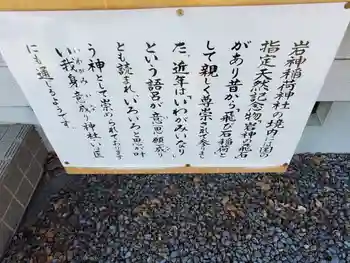 岩神稲荷神社の境内に国の
指定天然記念物岩神の飛石
があり昔から飛石稲荷と
して親しく尊崇されて参りまし
た。近年はいわがみいなり
という語呂が意思願成り
とも読まれ、いろいろ思が叶
う神として崇められております
い我身意成り神社に医
にも通じるようです。